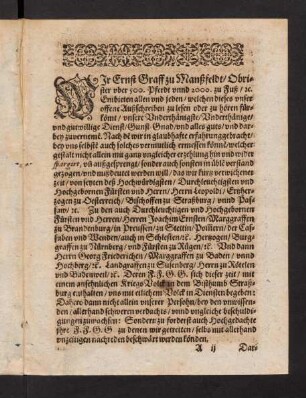 WIr Ernst Graff zu Manßfeldt/ Obri-
ster vber 500. Pferdt vnnd 2000. zu Fuß/ ꝛc.
Embieten allen vnd jeden/ welchen dieses vnser
offene Außschreiben zu lesen oder zu hören für-
kömt/ vnsere Vnderthänigste/ Vnderthänige/
vnd gutwillige Dienst/ Gunst/ Gnad/ vnd alles guts/ vnd dar-
bey zuvernemẽ. Nach dẽ wir in glaubhafte erfahrung gebracht/
bey vns selbst auch solches vermutlich ermessen könnẽ/ welcher
gestalt nicht allein mit gantz vngleicher erzählung hin vnd wider
spargiert, vñ außgesprengt/ sonder auch sonsten in übl verstand
gezogen/ vnd mißdeutet werden will/ das wir kurtz verwichener
zeit/ von seiten deß Hochwürdigsten/ Durchleuchtigsten vnd
Hochgebornen Fürsten vnd Herrn/ Herrn Leopoldi/ Ertzher-
zogen zu Oesterreich/ Bischoffen zu Straßburg/ vnnd Passa-
w/ ꝛc. Zu den auch Durchleuchtigen vnd Hochgebornen
Fürsten vnnd Herren/ Herren Joachim Ernsten/ Marggraffen
zu Brandenburg/ in Preussen/ zu Stettin/ Pommern/ der Cas-
suben vnd Wenden/ auch in Schlesien/ ꝛc. Hertzogen/ Burg-
graffen zu Nürnberg/ vnd Fürsten zu Rügen/ ꝛc. Vnd dann
Herrn Georg Friederichen/ Marggraffen zu Baden/ vnnd
Hochberg/ ꝛc. Landgraffen zu Susenberg/ Herrn zu Rötelen
vnd Badenweil/ ꝛc. Deren F. F. G. G. sich dieser zeit/ mit
einem ansehnlichen Kriegs Volck in dem Bisthumb Straß-
burg enthalten/ vns mit etlichem Volck in Diensten begeben:
Dahero dann nicht allein vnserer Person/ bey den vnwissen-
den/ allerhand schweren verdacht/ vnnd vngleiche beschuldi-
gungen zuwachsen: Sonder zu forderst auch Hochgedachte
jhre F. F. G. G. zu denen wir getretten/ selbs mit allerhand
vnzeitigen nachreden beschwärt werden könden.
A ij Dar-